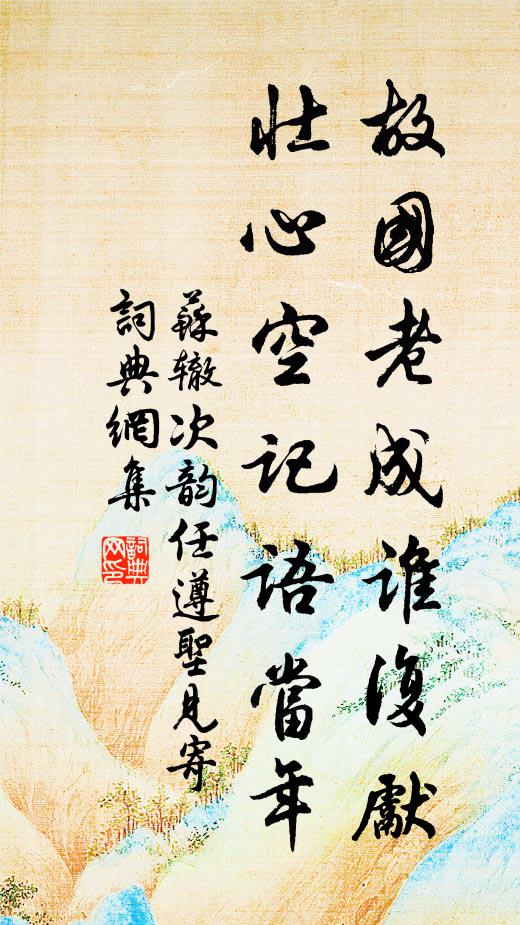 故國老成誰復獻
壯心空記語當年
蘇辙次韵任遵聖見寄
詞典網集
詞典網印